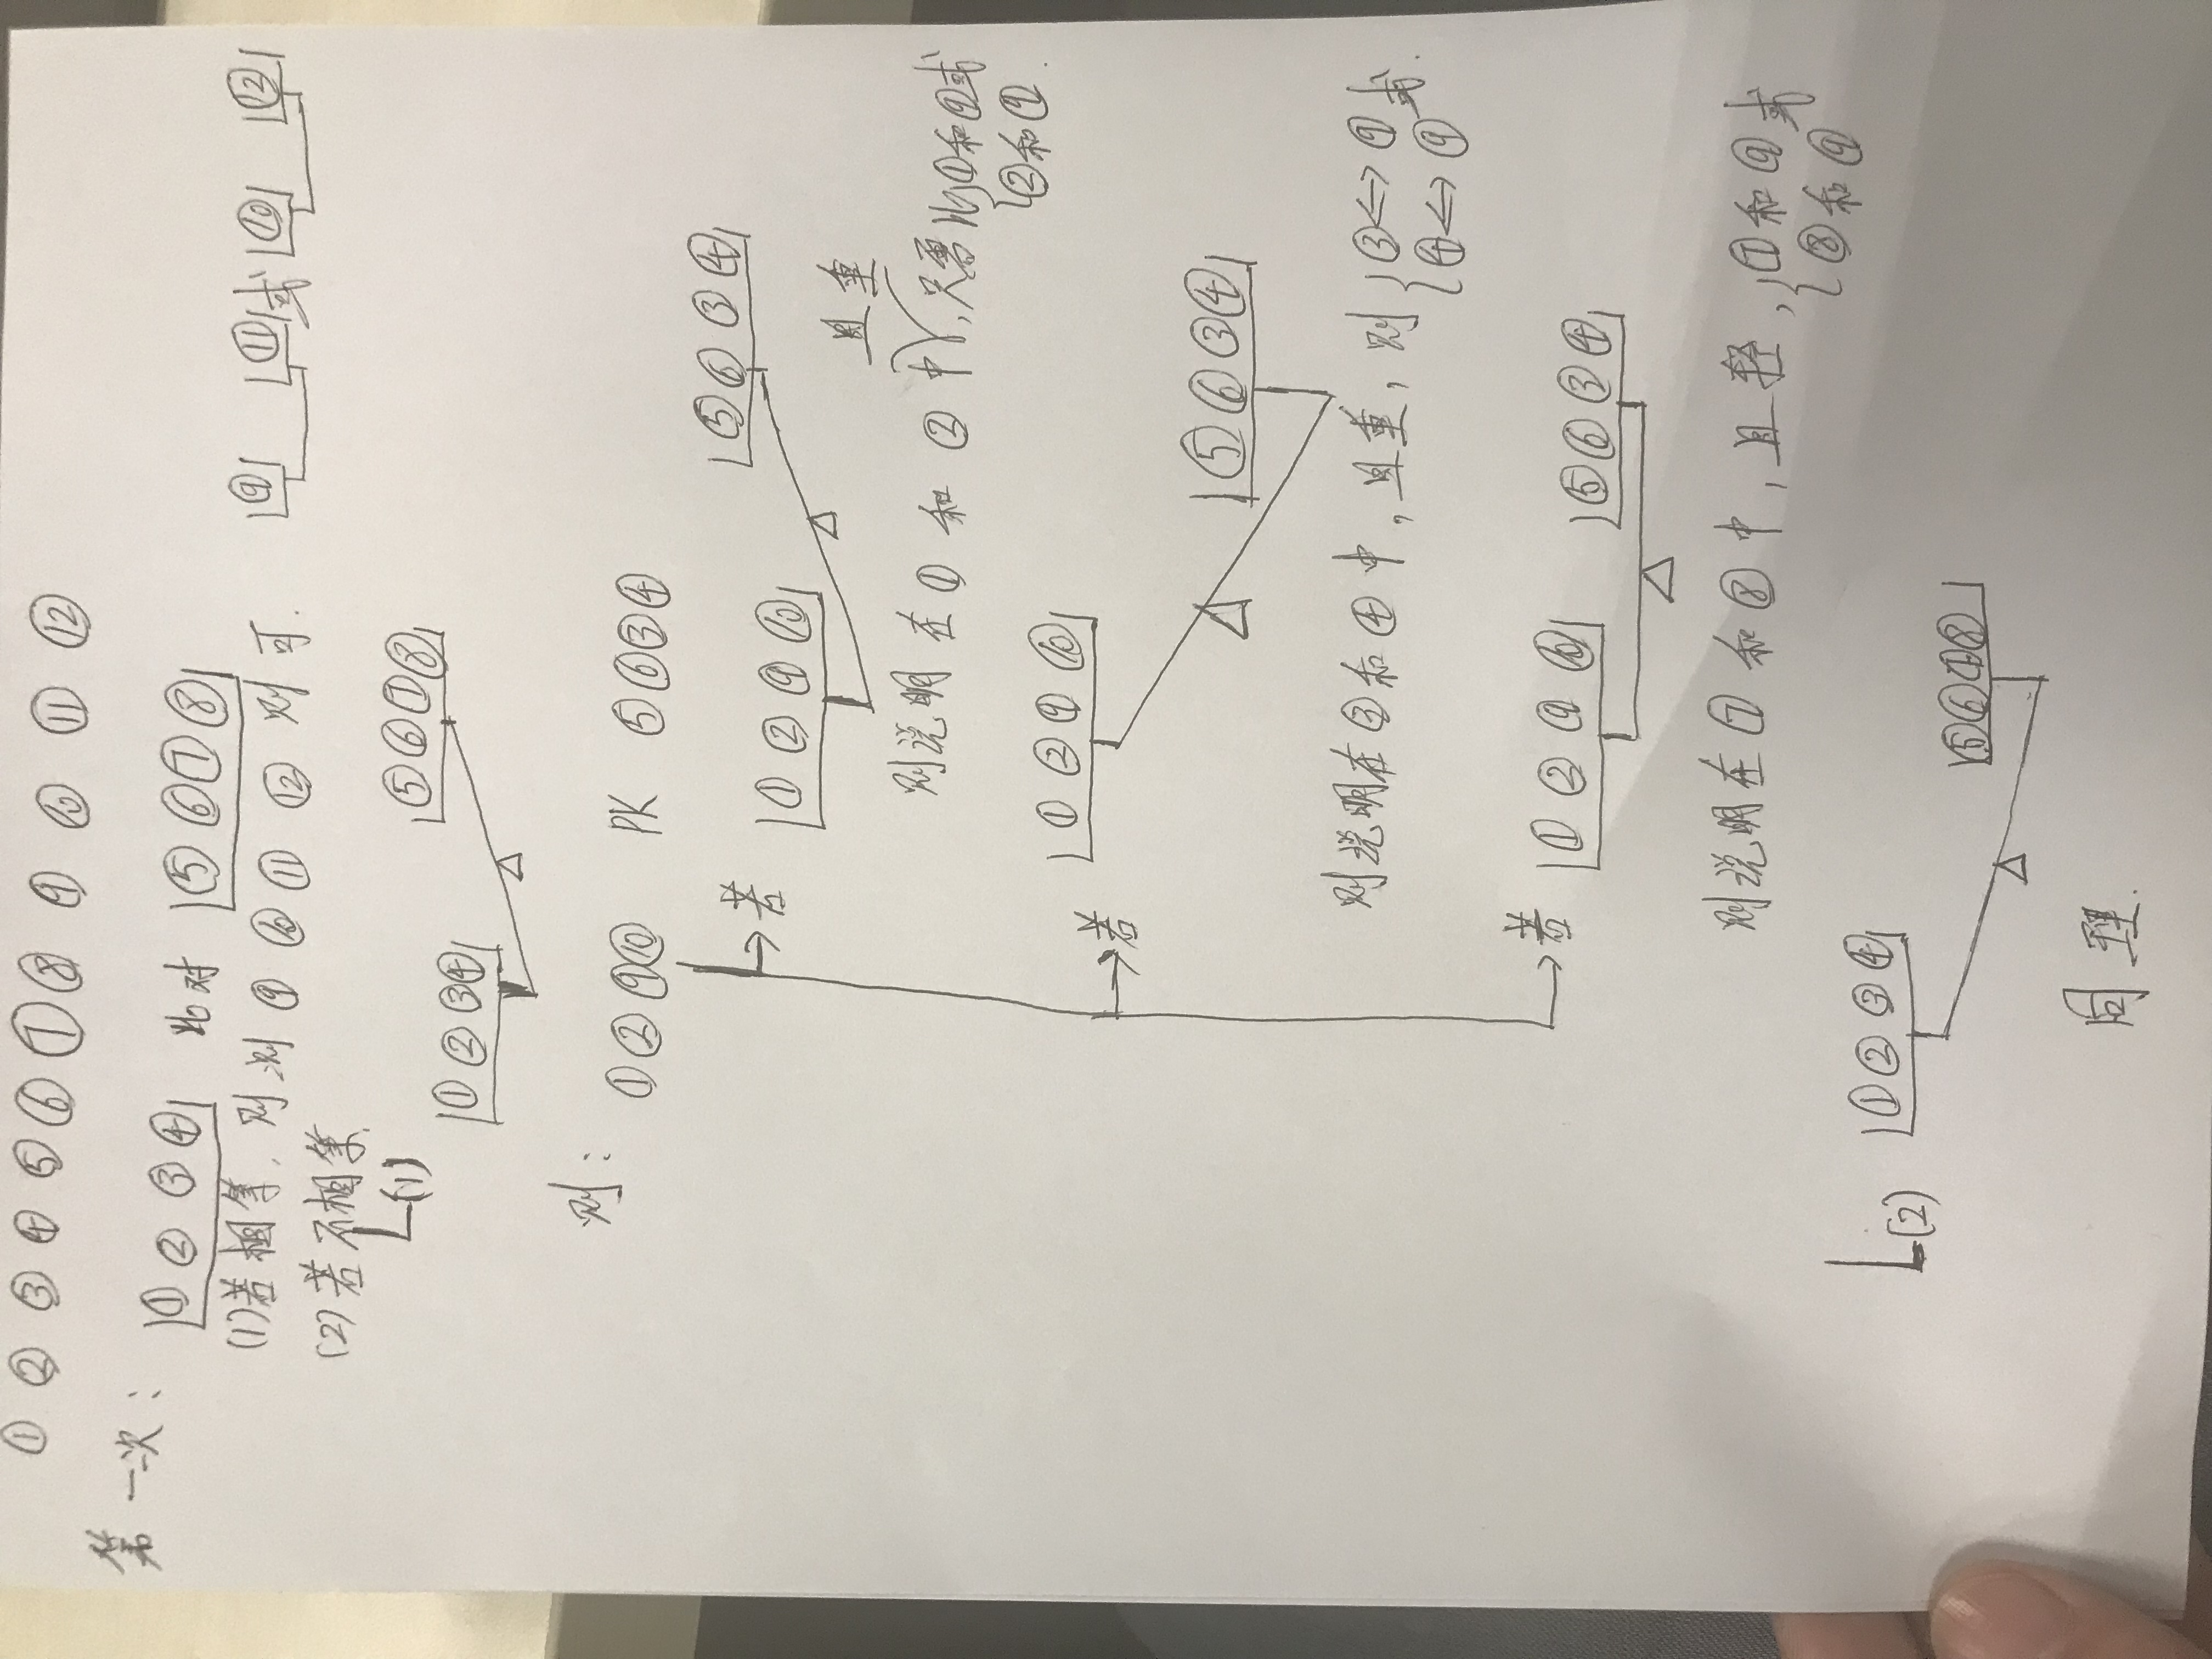 ① ② ③ ④ ⑤ ⑥ ⑦ ⑧ ⑨ ⑩ ⑪ ⑫
第一次：
① ② ③ ④ 比对 ⑤ ⑥ ⑦ ⑧
(1)若相等，则测 ⑨ ⑩ ⑪ ⑫ 则可. ⑨ ⑪ 或 ⑩ ⑫
(2)若不相等.
(1)
⑤ ⑥ ⑦ ⑧
① ② ③ ④
则：
① ② ⑨ ⑩ PK ⑤ ⑥ ③ ④
⑤ ⑥ ③ ④
若 ① ② ⑨ ⑩
且重
则说明在 ① 和 ② 中, 只需比 ① 和 ⑨ 或
② 和 ⑨.
若 ① ② ⑨ ⑩
⑤ ⑥ ③ ④
则说明在 ③ 和 ④ 中，且重，则 ③ ↔ ⑨ 或.
④ ↔ ⑨
若 ① ② ⑨ ⑩ ⑤ ⑥ ③ ④
则说明在 ⑦ 和 ⑧ 中，且轻，⑦ 和 ⑨ 或
⑧ 和 ⑨
(2) ① ② ③ ④
⑤ ⑥ ⑦ ⑧
同理.